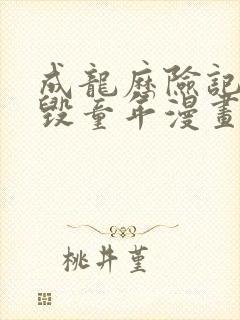 成龍歷險記
毀童年漫畫
桃井堇